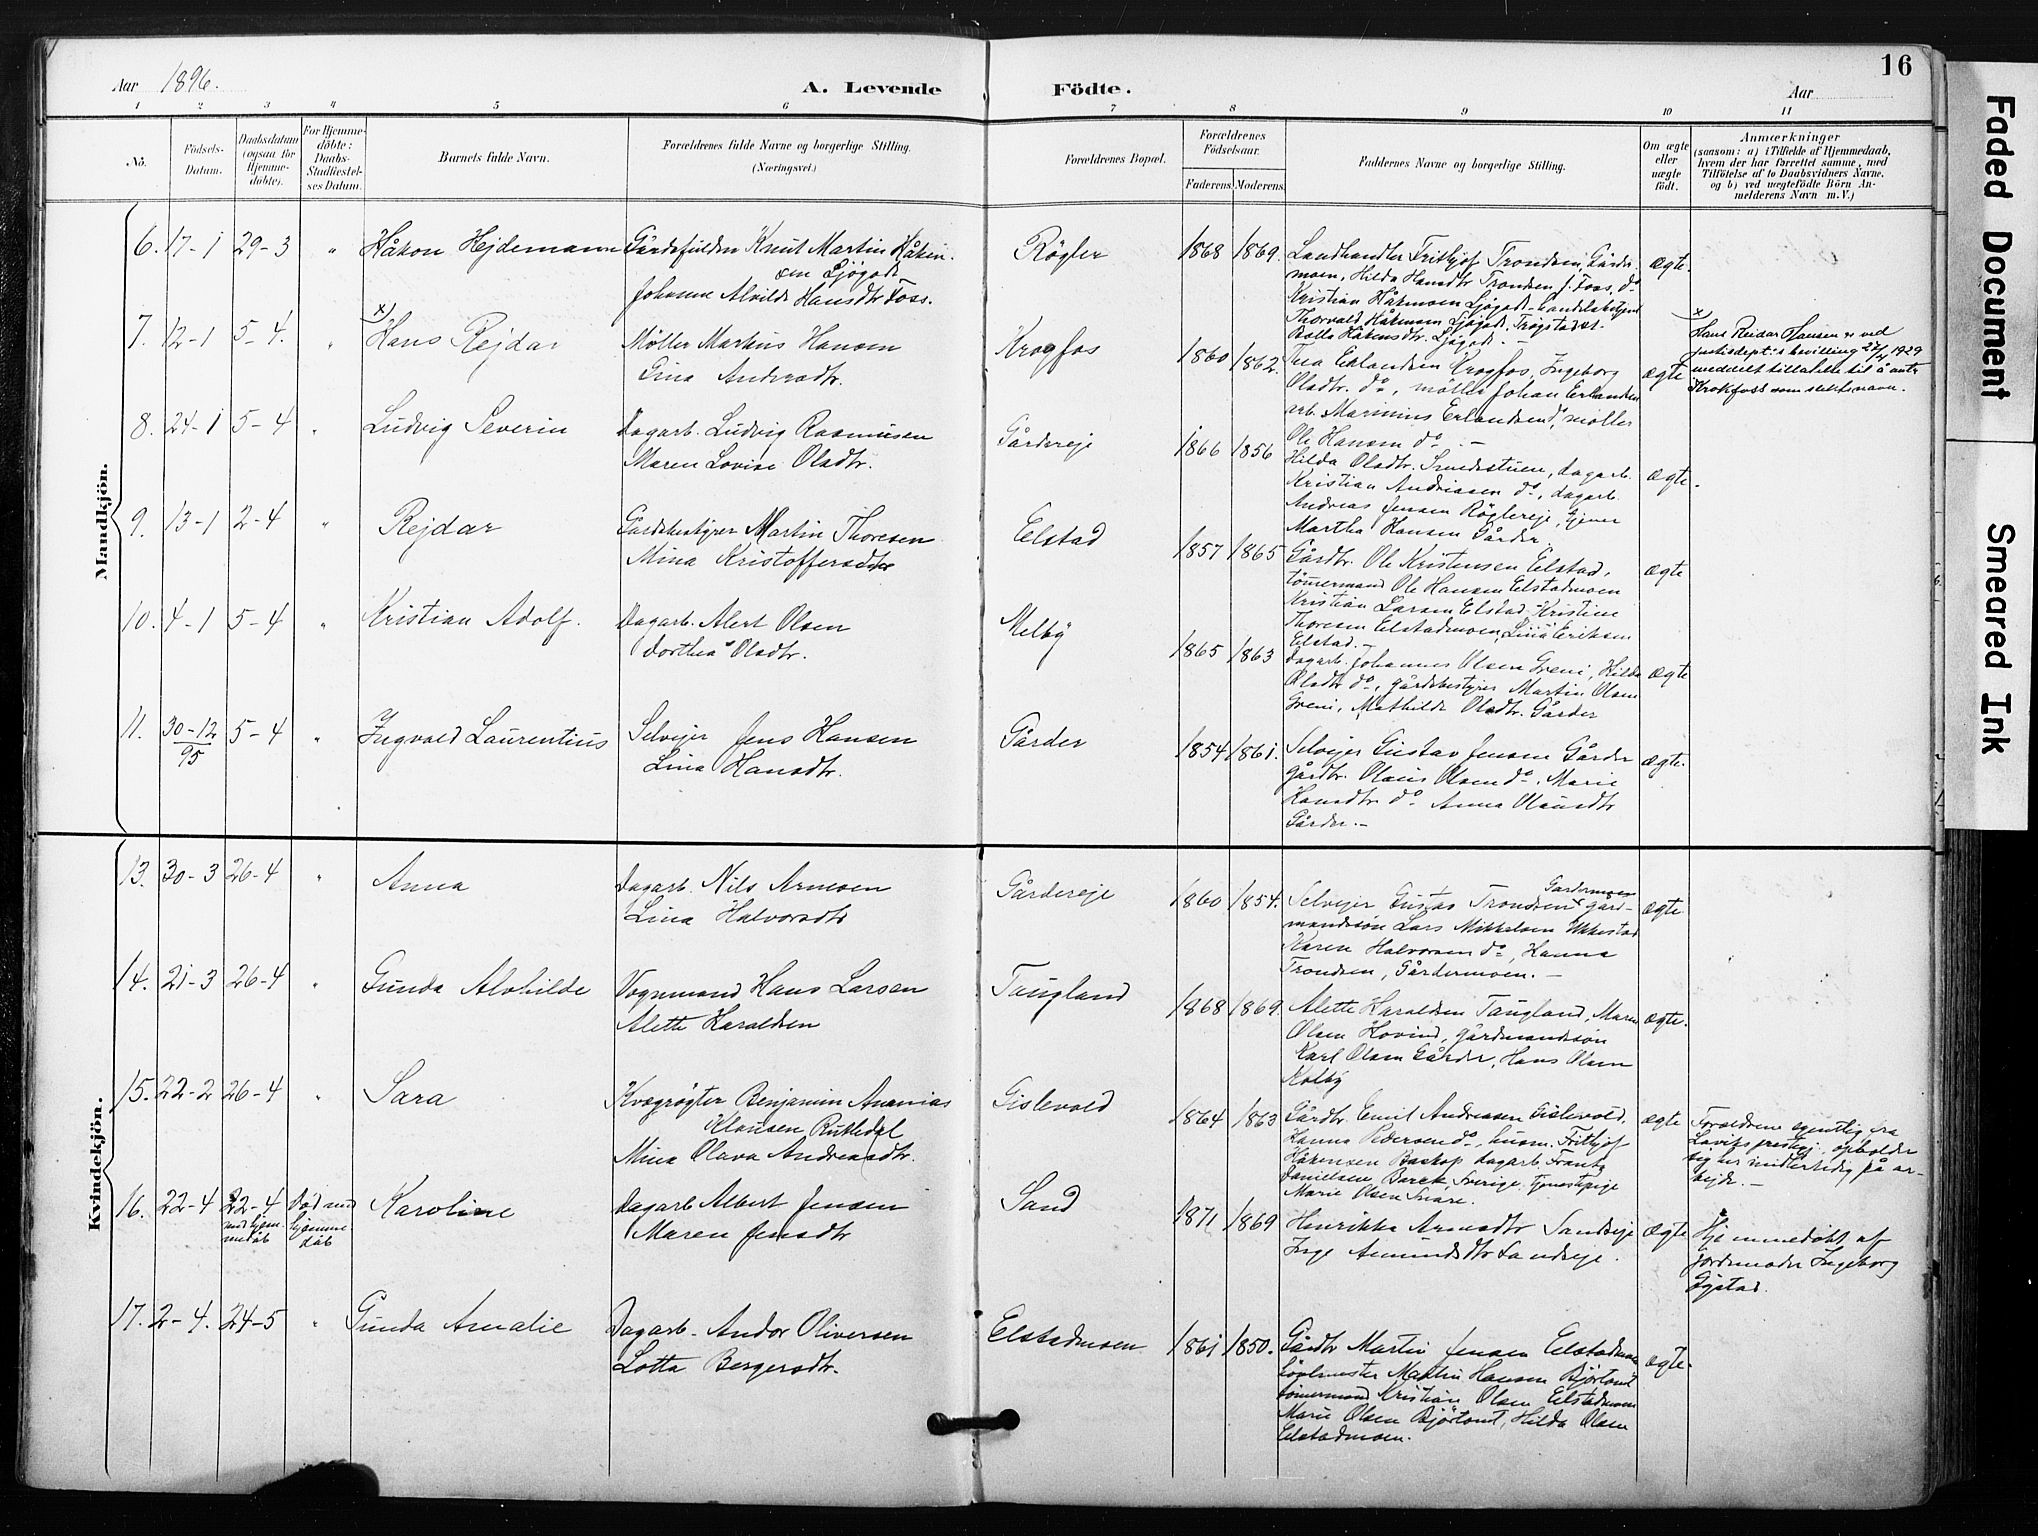 16
Aar 1896. A. Levende Födte. Aar
1 2 3 4 5 6 7 8 9 10 11
No.
Födsels-Datum.
Daabsdatum (ogsaa for Hjemme-döbte).
For Hjemme-döbte: Daabs-Stadfæstel-ses Datum.
Barnets fulde Navn.
Forældrenes fulde Navne og borgerlige Stilling.
(Næringsvei.)
Forældrenes Bopæl.
Forældrenes Födselsaar.
Faderens. Moderens.
Faddernes Navne og borgerlige Stilling.
Om ægte eller uægte født.
Anmærkninger
(saasom: a) i Tilfælde af Hjemmedaab, hvem der har forrettet samme, med Tilföielse af to Daabsvidners Navne, og b) ved uægtefödte Börn An-melderens Navn m. V.)
Mandkjön.
6. 17-1 29-3 " Håkon Hejdemann
Knut Martin Håkon-
sen Sjögod
Johanne Alvilde Hansdtr Foss.
Rögler 1868 1869.
Landhandler Frithjof Trondsen, Gårder-
moen, Hilda Hansdtr Trondsen f. Foss, do
ægte.
7. 12-1 5-4. " x) Hans Rejdar
Möller Martius Hansen
Gina Andreadtr.
Krogfos 1860 1862.
Krogfos, Ingeborg
Oladtr. do, möller Johan Erlandsen
arb. Marinius Erlandsen do, möller
Ole Hansen do. -
ægte
x) Hans Reidar Hansen er ved
justisdept.s bevilling 27/4 1929
meddelt tillatelse til å anta
Krokfoss som slektsnavn.
8. 24-1 5-4 " Ludvig Severin
Dagarb. Ludvig Rasmusen
Maren Lovise Oladtr.
Gårdereje 1866 1856
Hilda Oladtr. Smedsstuen, dagarb.
Kristian Andreasen do, dagarb.
Andreas Jensen Röglereje,
Martha Hansen Gårder.
ægte.
9. 13-1 2-4 " Rejdar
Gårdsbestyrer Martin Thoresen
Mina Kristoffersdtr
Elstad 1857 1865
Gårdbr. Ole Kristensen Elstad,
tömermand Ole Hansen Elstadmoen
Kristian Larsen Elstad, Kristine
Thoresen Elstadmoen, Lina Eriksen
Elstad. -
ægte
10. 4-1 5-4 " Kristian Adolf.
Dagarb. Alert Olsen
Dorthea Oladtr.
Melby 1865 1863
Dagarb. Johannes Olsen Greni, Hilda
Oladtr do, gårdsbestyrer Martin Olsen
Greni, Mathilde Oladtr. Gårder
ægte
11. 30-12/95 5-4 " Ingvald Laurentius
Selvejer Jens Hansen
Lina Hansdtr.
Gårder 1854 1861.
Selvejer Gustav Jensen Gårder
gårdbr. Olaus Olsen do. Marie
Hansdtr do Anna Olausdtr
Gårder. -
ægte.
Kvindekjön.
13. 30-3 26-4 " Anna
Dagarb. Nils Arnesen
Lina Halvorsdtr
Gårdereje 1860 1854.
Gardermoen
Selvejer Gustav Trondsen x gård-
mandssön Lars Mikkelsen Ukkestad
Karen Halvorsen do, Hanna
Trondsen, Gårdermoen. -
ægte
14. 21-3 26-4 " Gunda Alvhilde
Vognmand Hans Larsen
Alette Haraldsen
Taugland 1868 1869.
Alette Haraldsen Taugland, Maren
Olsen Hovind, gårdmandssön
Karl Olsen Gårder, Hans Olsen
Kolby
ægte.
15. 22-2 26-4 " Sara
Kvægrögter Benjamin Ananias
Klausen Rutledal
Mina Olava Andreasdtr.
Gislevold 1864 1863
Gårdbr. Emil Andreasen Gislevold,
Hanna Pedersen do, husm. Frithjof
Håkensen Baskop dagarb. Frantz
Danielsen, Barck, Sverige, Tjenestepige
Marie Olsen Snare.
ægte
Forældrene egentlig fra
Lavik prestegj., opholder
sig her midlertidig på ar-
bejde. -
16. 22-4 22-4 ved hjem-medåb Död ved hjemme dåb Karoline
Dagarb Albert Jensen
Maren Jensdtr
Sand 1871 1869
Henrikka Arnesdtr Sandseje
Inge Amundsdtr Sandseje.
ægte
Hjemmedöbt af
jordmoder Ingeborg
Gystad.
17. 2-4. 24-5 " Gunda Amalie
Dagarb. Andor Oliversen
Lotta Bergersdtr.
Elstadmoen 1861 1850.
Gårdbr Martin Jensen Elstadmoen
Martin Hansen Björtomt
tömermand Kristian Olsen Elstadmoen
Marie Olsen Björtomt, Hilda Olsen
Elstadmoen.
ægte.
Faded Document
Smeared Ink